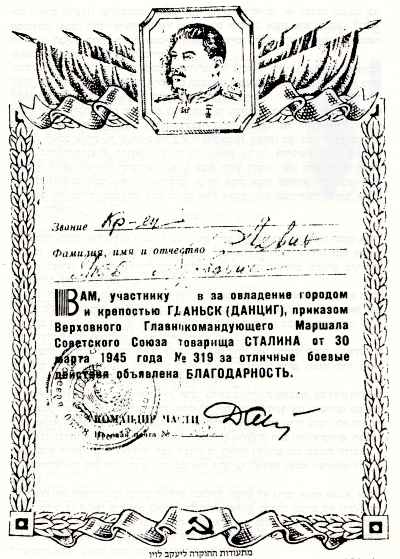 Звание Кр-ец
Фамилия, имя и отчество Левин
ВАМ, участнику в за овладение городом
и крепостью ГДАНЬСК (ДАНЦИГ), приказом
Верховного Главнокомандующего Маршала
Советского Союза товарища СТАЛИНА от 30
марта 1945 года № 319 за отличные боевые
действия объявлена БЛАГОДАРНОСТЬ.
КОМАНДИР ЧАСТИ
Полевая почта №
מתעודות ההוקרה ליעקב לוין